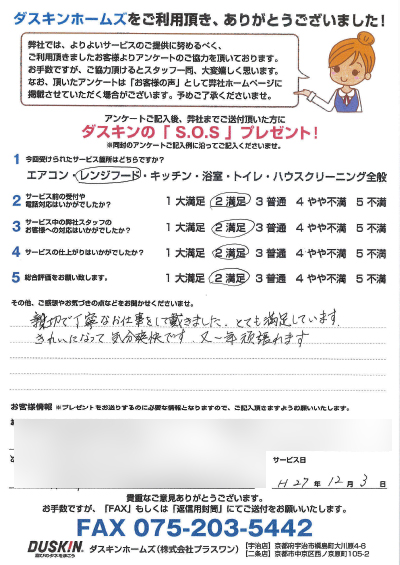 ダスキンホームズをご利用頂き、ありがとうございました!
弊社では、よりよいサービスのご提供に努めるべく、
ご利用頂きましたお客様よりアンケートのご協力を頂いております。
お手数ですが、ご協力頂けるとスタッフ一同、大変嬉しく思います。
なお、頂いたアンケートは「お客様の声」として弊社ホームページに
掲載させていただく場合がございます。予めご了承くださいませ。
アンケートご記入後、弊社までご送付頂いた方に
ダスキンの「S.O.S」プレゼント!
※同封のアンケートご記入例に沿ってご記入くださいませ。
1 今回受けられたサービス箇所はどちらですか?
エアコン・レンジフード・キッチン・浴室・トイレ・ハウスクリーニング全般
2 サービス前の受付や
電話対応はいかがでしたか? 1 大満足 2 満足 3 普通 4 やや不満 5 不満
3 サービス中の弊社スタッフの
お客様への対応はいかがでしたか? 1 大満足 2 満足 3 普通 4 やや不満 5 不満
4 サービスの仕上がりはいかがでしたか? 1 大満足 2 満足 3 普通 4 やや不満 5 不満
5 総合評価をお願い致します。 1 大満足 2 満足 3 普通 4 やや不満 5 不満
その他、ご感想やお気づきの点などをお聞かせくださいませ。
親切で丁寧なお仕事をして戴きました。とても満足しています。
きれいになって気分爽快です。又一年頑張れます
お客様情報 ※プレゼントをお送りするのに必要な情報となりますので、ご記入頂きますようお願いいたします。
サービス日
H27年12月3日
貴重なご意見ありがとうございます。
お手数ですが、「FAX」もしくは「返信用封筒」にてご送付をお願いいたします。
FAX 075-203-5442
DUSKIN ダスキンホームズ(株式会社プラスワン)
【宇治店】京都府宇治市槇島町大川原4-6
【二条店】京都市中京区西ノ京原町105-2